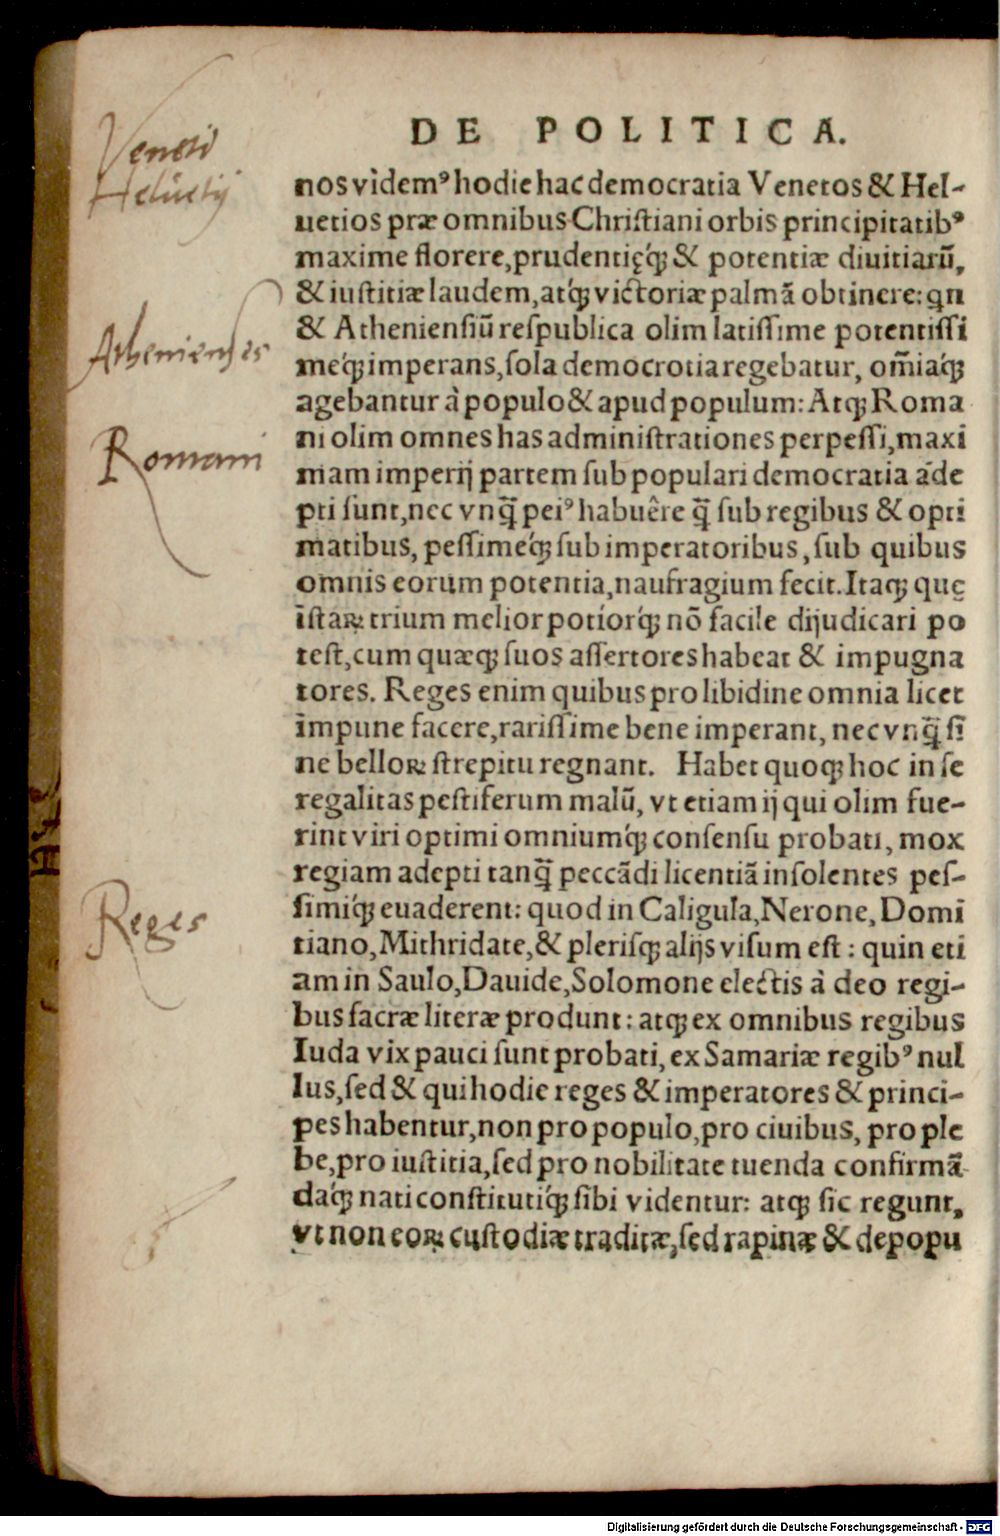 DE POLITICA.
Veneti
Heluetij
nos videmꝰ hodie hac democratia Venetos & Hel-
uetios præ omnibus Christiani orbis principitatibꝰ
maxime florere, prudentięq́ꝫ & potentiæ diuitiarũ,
& iustitiæ laudem, atq́ꝫ victoriæ palmã obtinere: qn
Athenienses
& Atheniensiũ respublica olim latissime potentissi
meq́ꝫ imperans, sola democrotia regebatur, om̃iaq́ꝫ
agebantur à populo & apud populum: Atqꝫ Roma
Romani
ni olim omnes has administrationes perpessi, maxi
mam imperij partem sub populari democratia ade
pti sunt, nec vnq̃ peiꝰ habuêre q̃ sub regibus & opti
matibus, pessimeq́ꝫ sub imperatoribus, sub quibus
omnis eorum potentia, naufragium fecit. Itaqꝫ quę
istaꝝ trium melior potiorq́ꝫ nõ facile dijudicari po
test, cum quæqꝫ suos assertores habeat & impugna
tores. Reges enim quibus pro libidine omnia licet
impune facere, rarissime bene imperant, nec vnq̃ si
ne belloꝝ strepitu regnant. Habet quoqꝫ hoc in se
regalitas pestiferum malũ, vt etiam ij qui olim fue-
rint viri optimi omniumq́ꝫ consensu probati, mox
regiam adepti tanq̃ peccãdi licentiã insolentes pes-
Reges
simiq́ꝫ euaderent: quod in Caligula, Nerone, Domi
tiano, Mithridate, & plerisqꝫ alijs visum est: quin eti
am in Saulo, Dauide, Solomone electis à deo regi-
bus sacræ literæ produnt: atqꝫ ex omnibus regibus
Iuda vix pauci sunt probati, ex Samariæ regibꝰ nul
lus, sed & qui hodie reges & imperatores & princi-
pes habentur, non pro populo, pro ciuibus, pro ple
be, pro iustitia, sed pro nobilitate tuenda confirmã
daq́ꝫ nati constitutiq́ꝫ sibi videntur: atqꝫ sic regunt,
vt non eoꝝ custodiæ traditæ, sed rapinæ & depopu
Digitalisierung gefördert durch die Deutsche Forschungsgemeinschaft - DFG